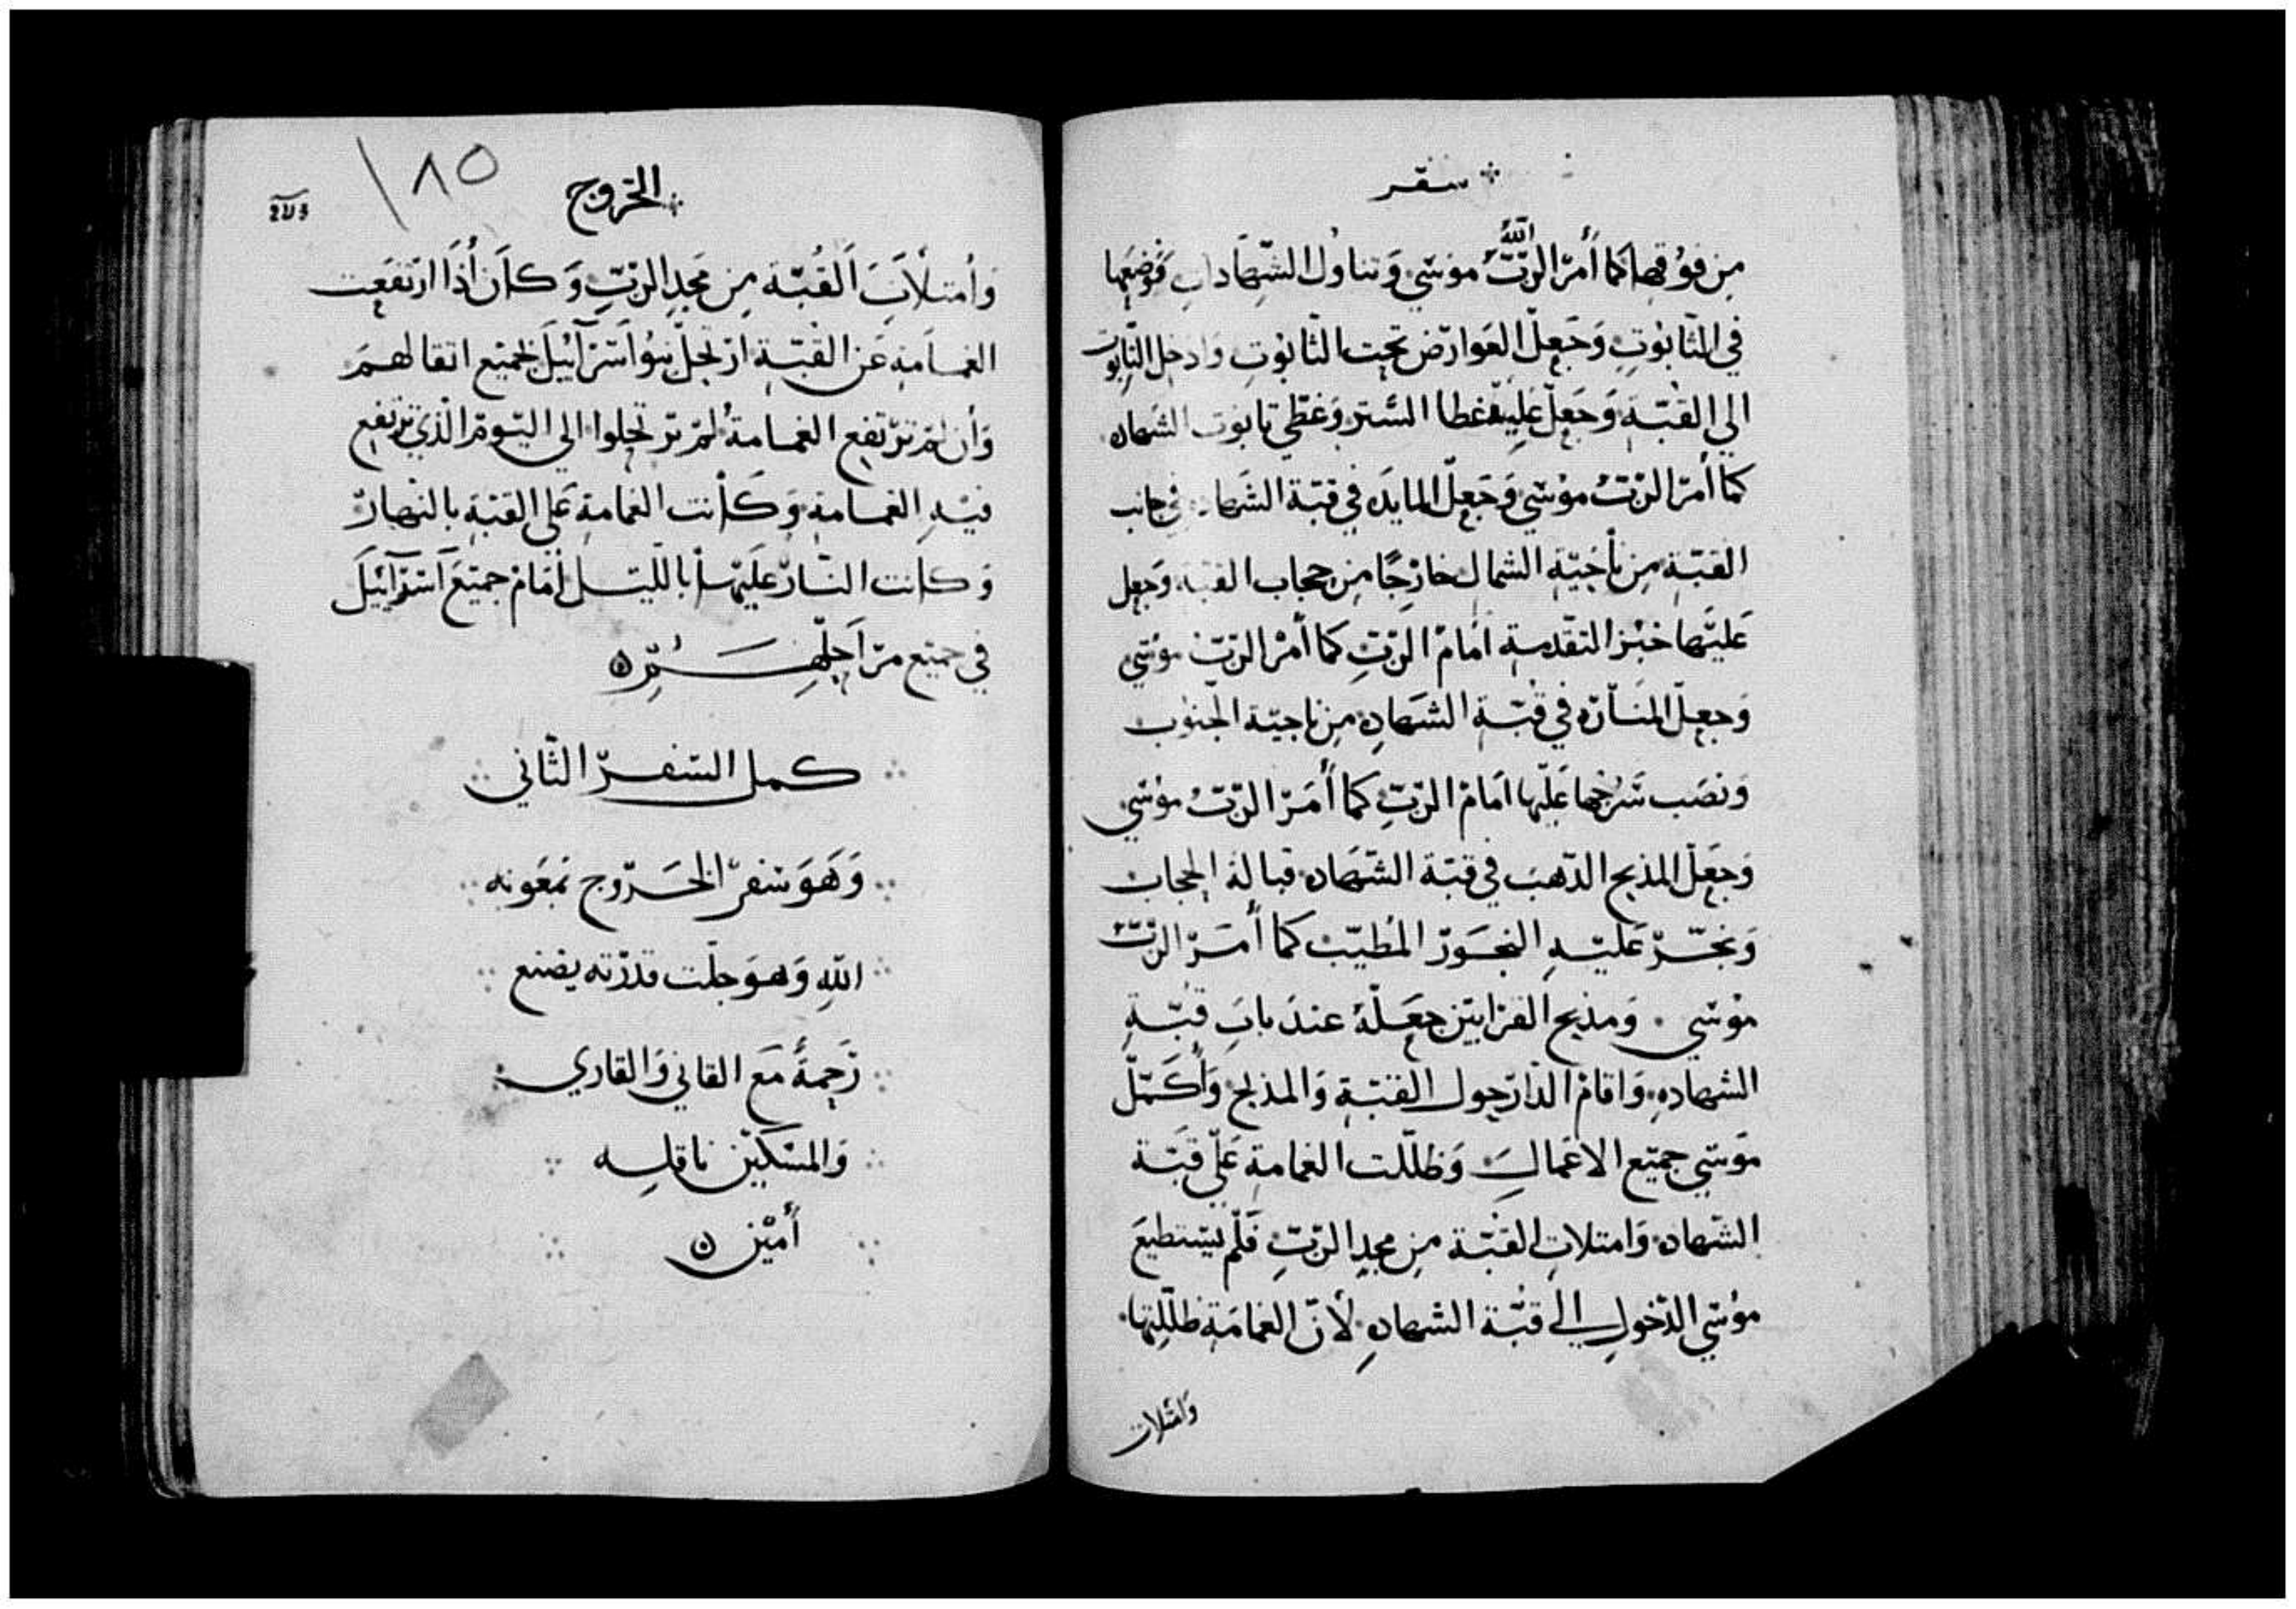 سفر
من فوقها كما أمر الرب الله موسي وتناول الشهادات فوضعها
في التابوت وجعل العوارض تحت التابوت وادخل التابوت
الي القبة وجعل عليه غطا الستر وغطي تابوت الشهاده
كما أمر الرب موسي وجعل المايده في قبة الشهاده في جانب
القبة من ناحية الشمال خارجًا من حجاب القبة وجعل
عليها خبز التقدمة امام الرب كما أمر الرب موسي
وجعل المناره في قبة الشهاده من ناحية الجنوب
ونصب سرجها عليها امام الرب كما أمر الرب موسي
وجعل المذبح الذهب في قبة الشهاده قبالة الحجاب
وبخر عليه البخور المطيب كما أمر الرب
موسي . ومذبح القرابين جعله عند باب قبة
الشهاده واقام الدار حول القبة والمذبح وأكمل
موسي جميع الاعمال وظللت الغمامة علي قبة
الشهاده وامتلات القبة من مجد الرب فلم يستطيع
موسي الدخول الي قبة الشهاده لأن الغمامة ظللتها
وامتلات
الخروج
١٨٥
وأمتلأت القبة من مجد الرب وكان أذا ارتفعت
الغمامة عن القبة ارتحل بنو اسرآئيل بجميع اتقالهم
وأن لم ترتفع الغمامة لم يرتحلوا الي اليوم الذي ترتفع
فيه الغمامة وكانت الغمامة علي القبة بالنهار
وكانت النار عليها بالليل أمام جميع اسرآئيل
في جميع مراحلهم
كمل السفر الثاني
وهو سفر الخروج بمعونه
الله وهو جلت قدرته يصنع
رحمةً مع القاني والقاري
والمسكين ناقله
أمين